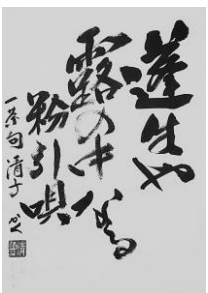 蓬生や
露の中
なる
粉引唄
一茶句 清子